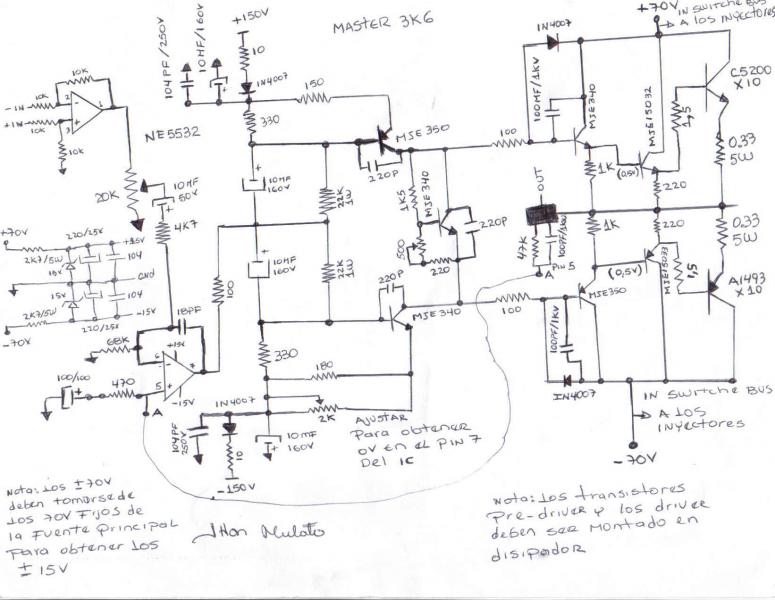 MASTER 3K6
+150V
104PF/250V
10MF/160V
10
1N4007
150
330
10K
-IN
10K
2
1
+IN
10K
3
10K
NE5532
20K
10MF
50V
4K7
10MF
160V
22K
1W
10MF
160V
22K
1W
100
MJE 350
220P
1K5
MJE340
220P
500
220
220P
MJE 340
100
100
+70V
IN SWITCHE BUS
A LOS INYECTORES
1N4007
100MF/1KV
MJE340
MJE15032
C5200
X10
1,5
0.33
5W
1K
(0,5V)
220
OUT
47K
100PF/1KV
PIN 5
A
1K
220
0.33
5W
(0,5V)
MJE15033
1,5
A1493
X10
MJE350
100PF/1KV
IN4007
IN SWITCHE BUS
A LOS
INYECTORES
-70V
+70V
220/25V
+15V
2K7/5W
15V
104
GND
15V
104
2K7/5W
-15V
220/25V
-70V
18PF
68K
+15V
6
7
5
-15V
100/100
470
A
330
180
1N4007
2K
104PF
250V
10
10MF
160V
-150V
AJUSTAR
Para obtener
0V en el PIN 7
Del IC
Nota: Los ±70V
deben tomarse de
Los 70V Fijos de
la Fuente Principal
Para obtener Los
± 15V
Jhon Mulato
Nota: Los transistores
Pre-driver y los driver
deben ser Montado en
disipador